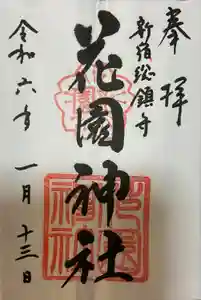 奉拝
新宿総鎮守
花園神社
令和六年
一月十三日